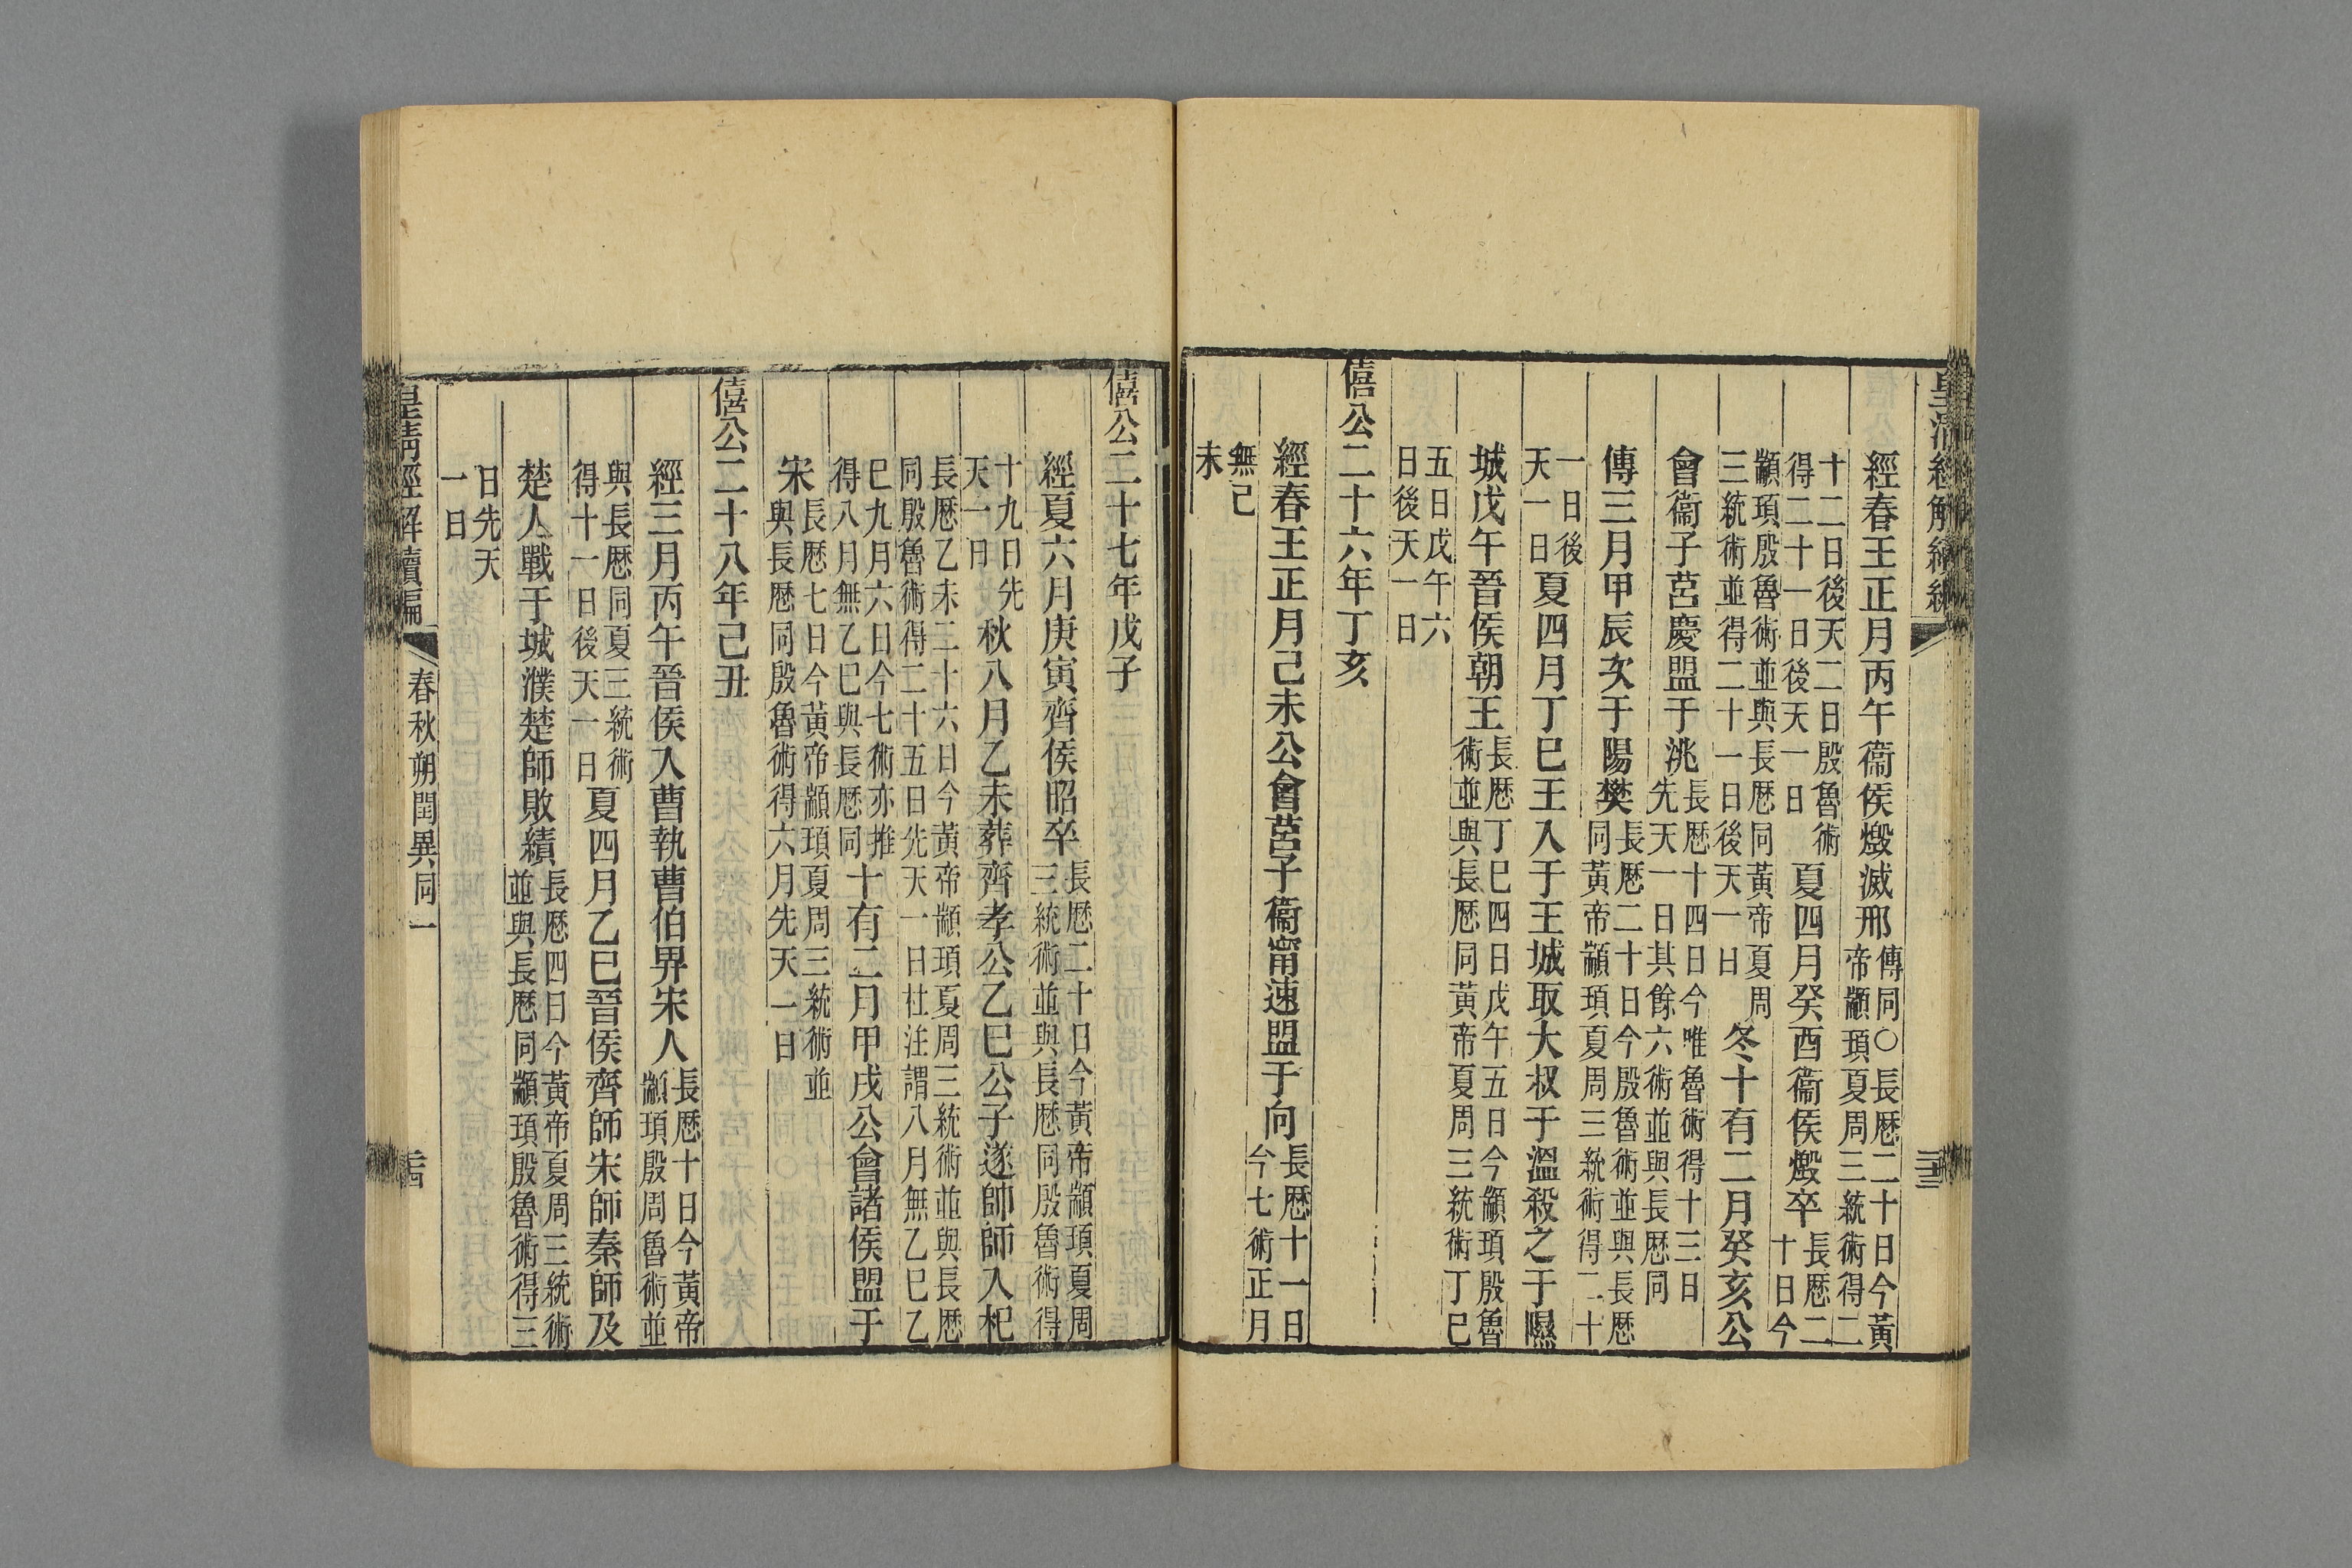 皇清經解續編
三十三
經春王正月丙午衞侯燬滅邢傳同○長厯二十日今黃帝顓頊夏周三統術得二
十二日後天二日殷魯術得二十一日後天一日夏四月癸酉衞侯燬卒長厯二十日今
顓頊殷魯術並與長厯同黃帝夏周三統術並得二十一日後天一日冬十有二月癸亥公
會衞子莒慶盟于洮長厯十四日今唯魯術得十三日先天一日其餘六術並與長厯同
傳三月甲辰次于陽樊長厯二十日今殷魯術並與長厯同黃帝顓頊夏周三統術得二十
一日後天一日夏四月丁巳王入于王城取大叔于溫殺之于隰
城戊午晉侯朝王長厯丁巳四日戊午五日今顓頊殷魯術並與長厯同黃帝夏周三統術丁巳
五日戊午六日後天一日
僖公二十六年丁亥
經春王正月己未公會莒子衞甯速盟于向長厯十一日今七術正月
無己未
僖公二十七年戊子
經夏六月庚寅齊侯昭卒長厯二十日今黃帝顓頊夏周三統術並與長厯同殷魯術得
十九日先天一日秋八月乙未葬齊孝公乙巳公子遂帥師入杞
長厯乙未二十六日今黃帝顓頊夏周三統術並與長厯同殷魯術得二十五日先天一日杜注謂八月無乙巳乙
巳九月六日今七術亦推得八月無乙巳與長厯同十有二月甲戌公會諸侯盟于
宋長厯七日今黃帝顓頊夏周三統術並與長厯同殷魯術得六月先天一日
僖公二十八年己丑
經三月丙午晉侯入曹執曹伯畀宋人長厯十日今黃帝顓頊殷周魯術並
與長厯同夏三統術得十一日後天一日夏四月己巳晉侯齊師宋師秦師及
楚人戰于城濮楚師敗績長厯四日今黃帝夏周三統術並與長厯同顓頊殷魯術得三
日先天一日
皇清經解續編
春秋朔閏異同一
三十四